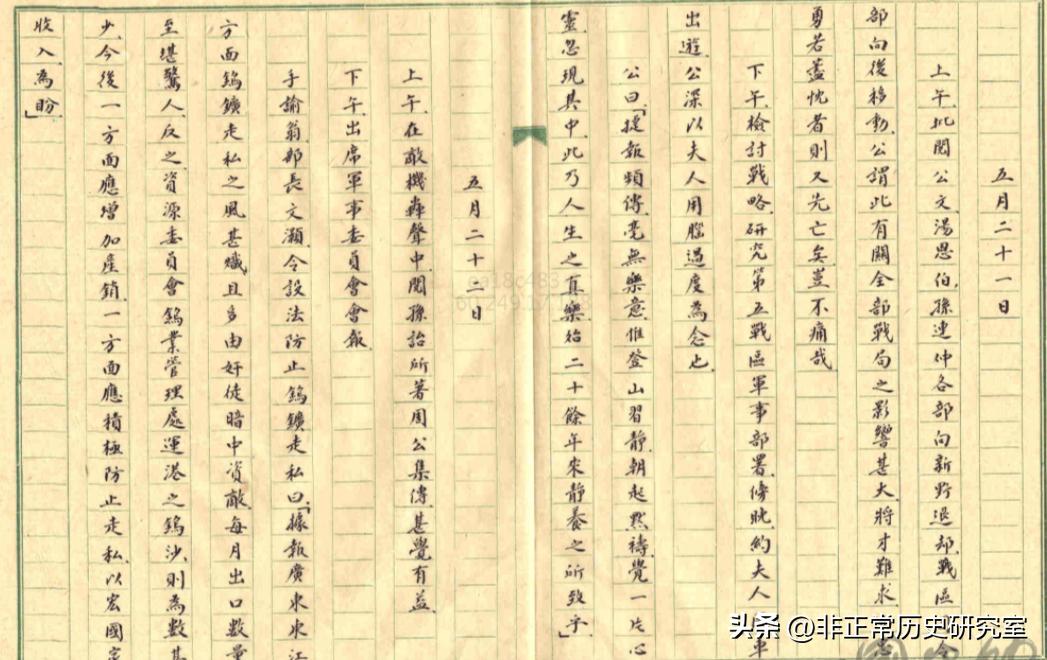 五月二十一日
上午批閱公文湯恩伯孫連仲各部向新野退却戰區令
部向後移動公謂此有關全部戰局之影響甚大將才難求忠
勇若藎忱者則又先亡矣豈不痛哉
下午檢討戰略研究第五戰區軍事部署傍晚約夫人車
出遊公深以夫人用腦過度為念也
公曰「捷報頻傳毫無樂意惟登山習靜朝起默禱覺一片心
靈忽現其中此乃人生之真樂殆二十餘年來靜養之所致乎」
五月二十二日
上午在敵機轟聲中閱孫詒所著周公集傳甚覺有益
下午出席軍事委員會會報
手諭翁部長文灝令設法防止鎢鑛走私曰「據報廣東東江
方面鎢鑛走私之風甚熾且多由奸徒暗中資敵每月出口數量
至堪驚人反之資源委員會鎢業管理處運港之鎢沙則為數甚
少今後一方面應增加產銷一方面應積極防止走私以宏國家
收入為盼」
头条 @非正常历史研究室